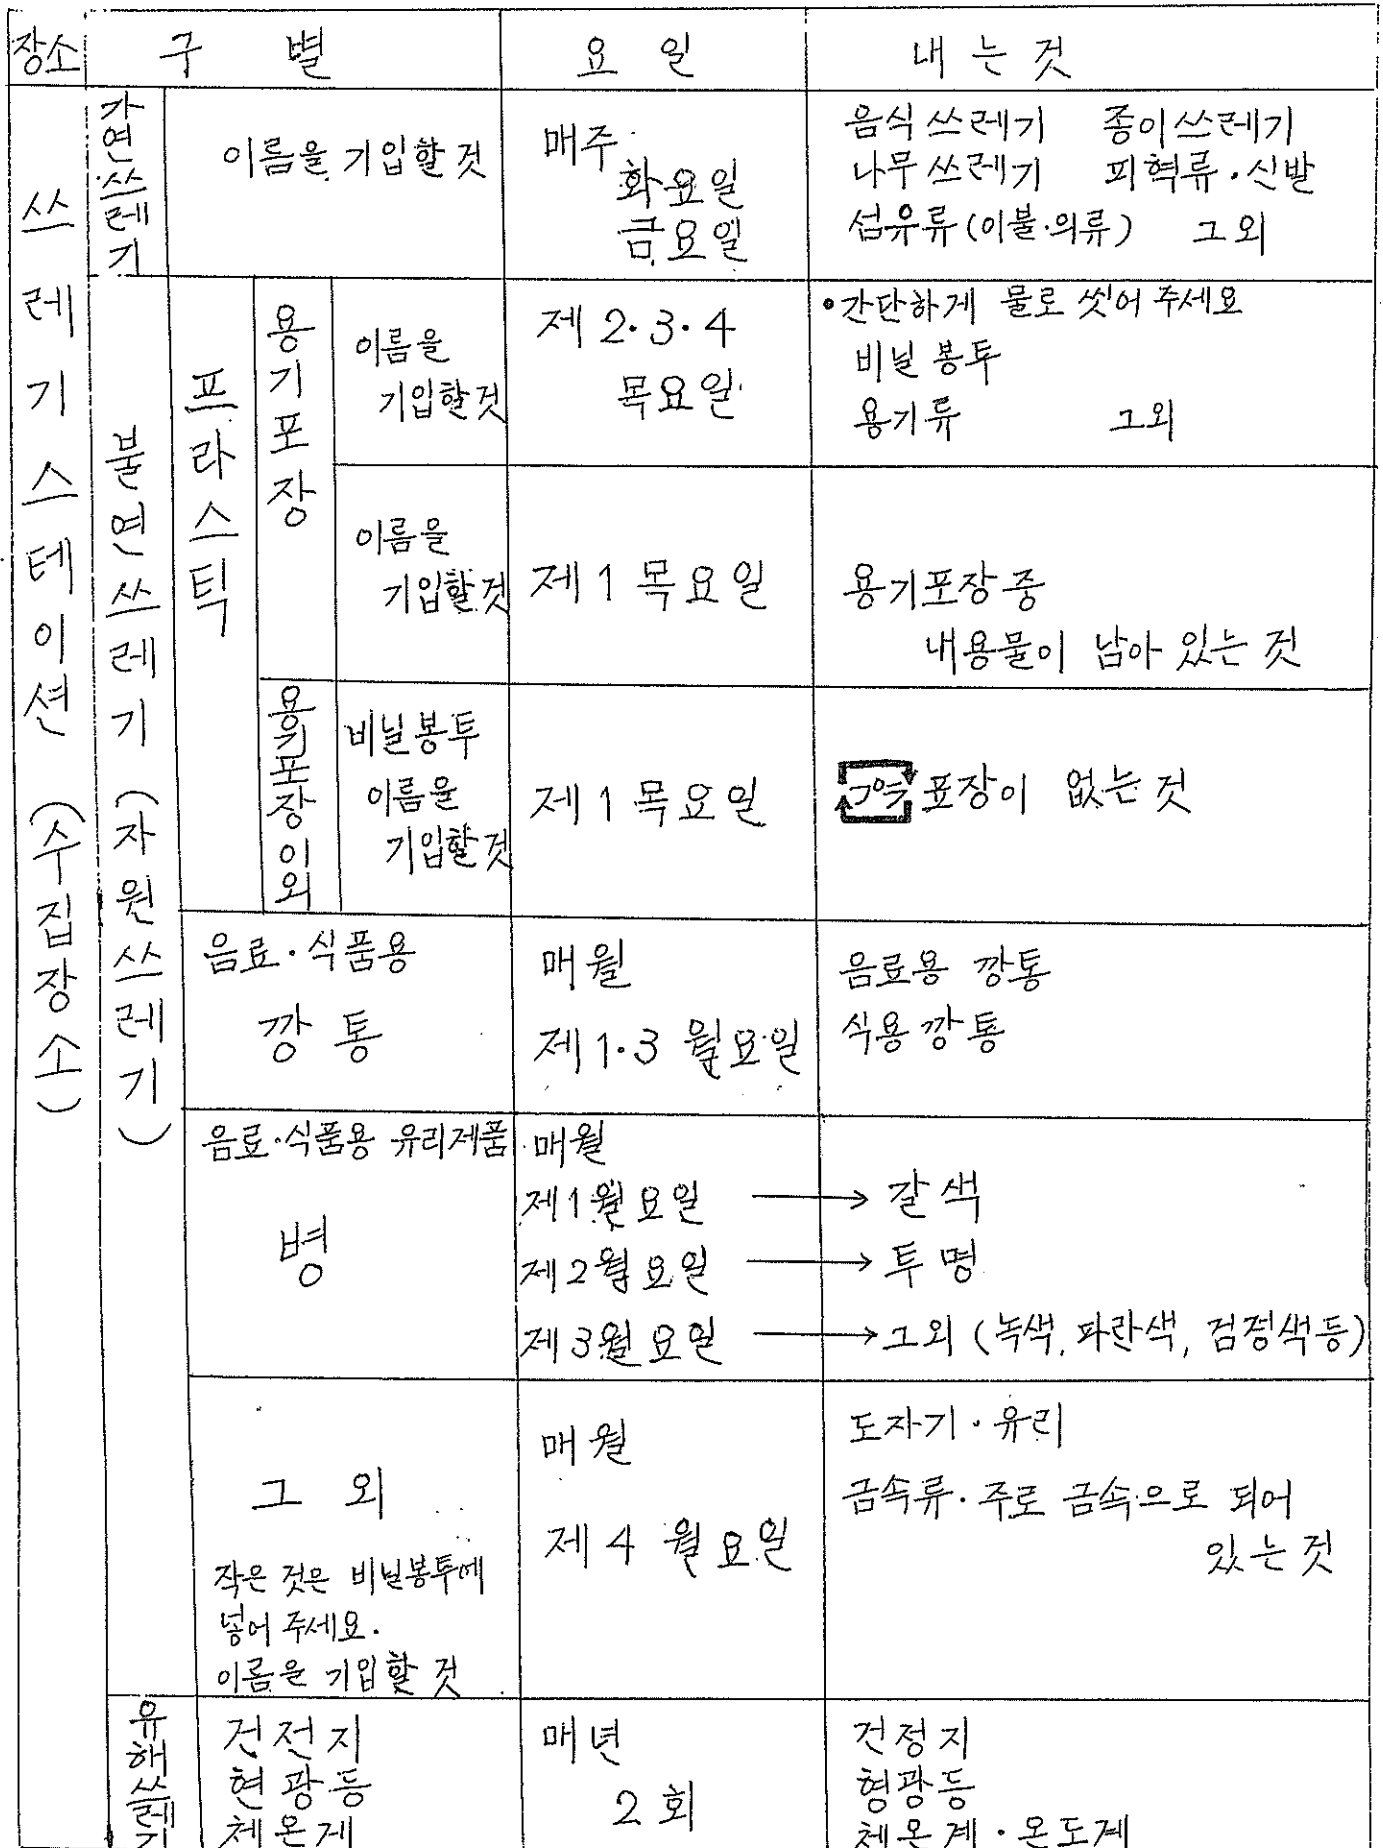 장소 구 별 요 일 내 는 것
쓰레기 스테이션 (수집장소)
가연쓰레기
이름을 기입할 것
매주
화요일
금요일
음식 쓰레기 종이쓰레기
나무 쓰레기 피혁류·신발
섬유류(이불·의류) 그외
불연쓰레기 (자원쓰레기)
프라스틱
용기포장
이름을
기입할것
제 2·3·4
목요일
•간단하게 물로 씻어 주세요
비닐 봉투
용기류 그외
이름을
기입할것
제 1 목요일
용기포장 중
내용물이 남아 있는 것
용기포장이외
비닐봉투
이름을
기입할것
제 1 목요일
표장이 없는 것
음료·식품용
깡 통
매월
제 1·3 월요일
음료용 깡통
식용 깡통
음료·식품용 유리제품
병
매월
제1월요일 → 갈색
제2월요일 → 투명
제3월요일 → 그외 (녹색, 파란색, 검정색등)
그 외
작은 것은 비닐봉투에
넣어 주세요.
이름은 기입할 것
매월
제 4 월요일
도자기·유리
금속류·주로 금속으로 되어
있는 것
유해쓰레기
건전지
현광등
체온게
매년
2회
건정지
형광등
체온계·온도계